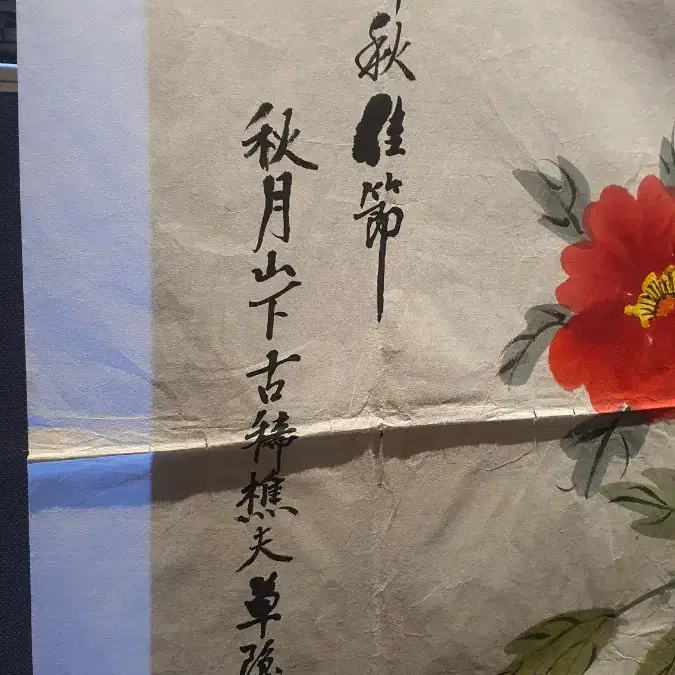 秋佳節
秋月山下古稀樵夫草隐